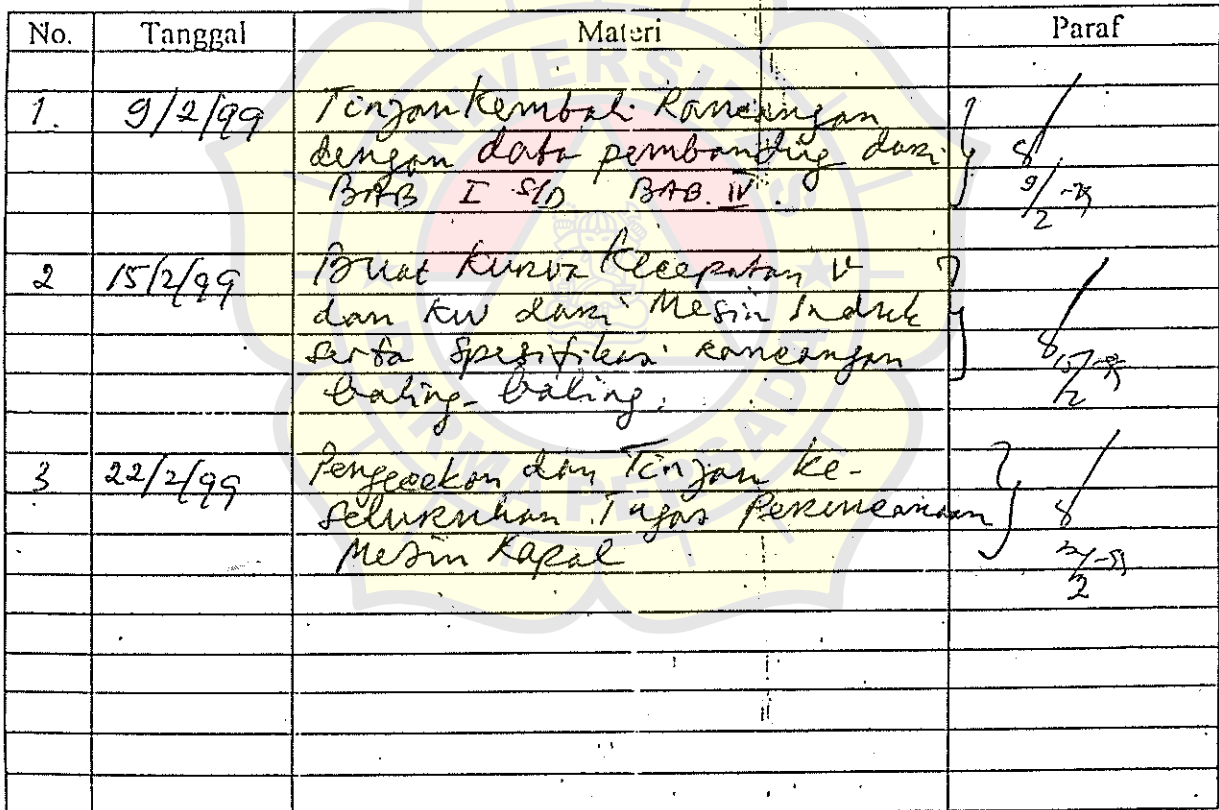 No. Tanggal Materi Paraf
1. 9/2/99 Tinjau kembali Rancangan
dengan data pembanding dari
BAB I S/D BAB. IV.
9/2 -99
2 15/2/99 Buat Kurva Kecepatan V
dan KW dari Mesin Induk
serta Spesifikasi rancangan
15/2 -99
baling-baling.
3 22/2/99 Pengecekan dan Tinjau ke-
seluruhan Tugas Perencanaan
Mesin Kapal
22/2 -99
UNIVERSITAS
DARMA PERSADA